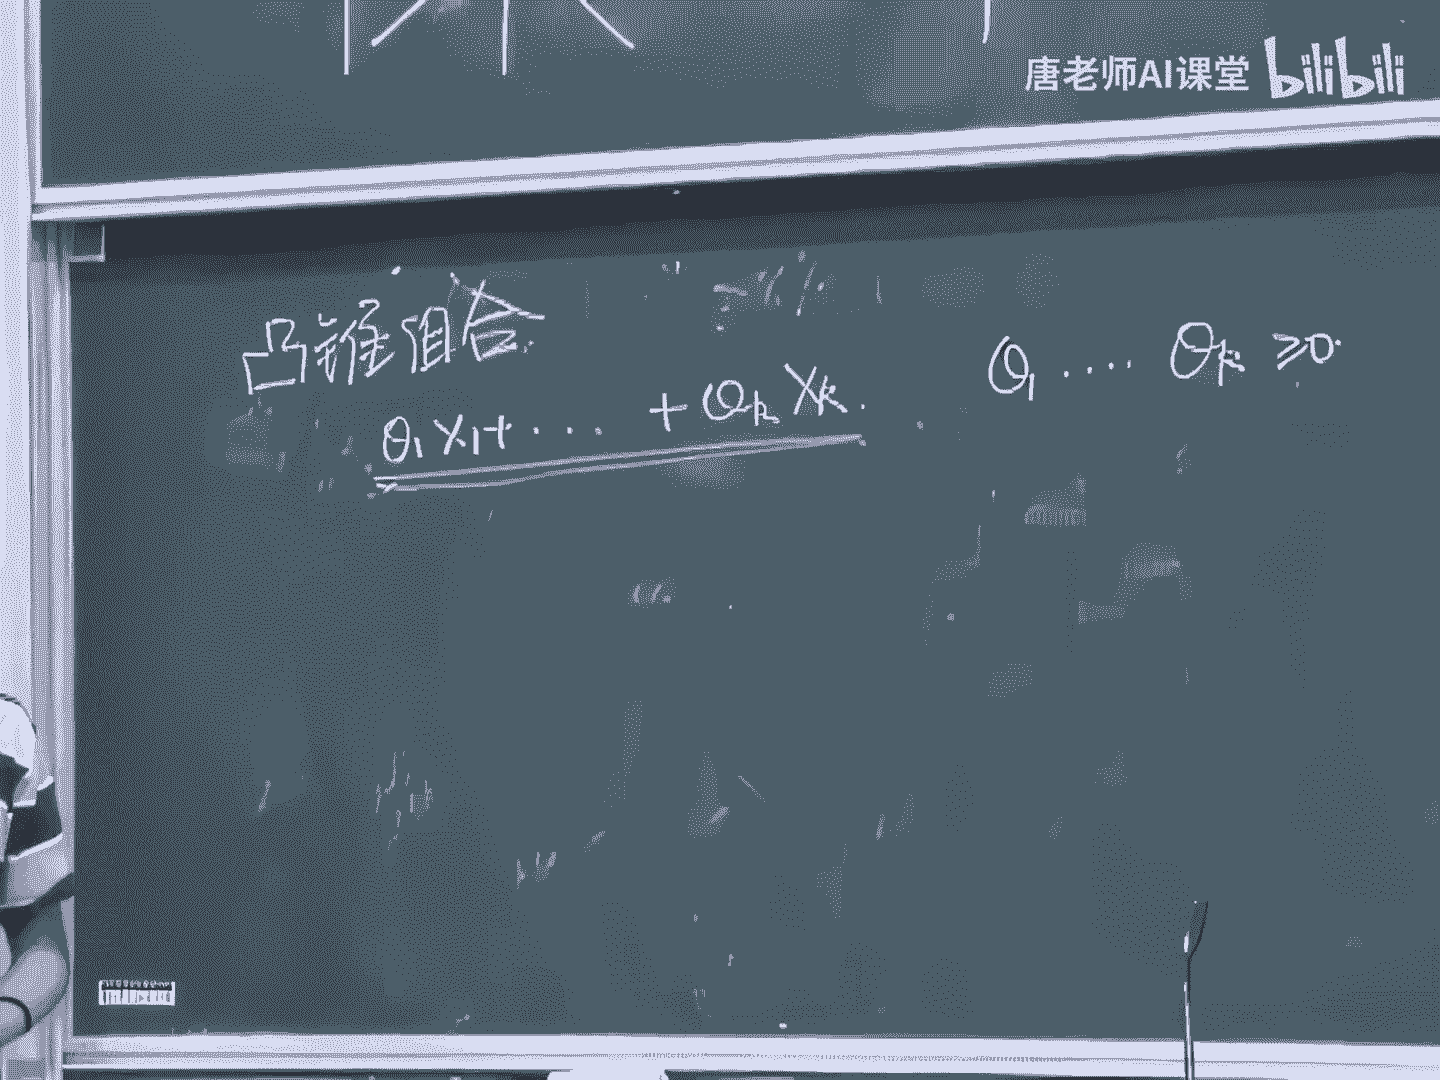 唐老师AI课堂 bilibili
凸锥组合
θ₁x₁+····+θₖxₖ. θ₁···· θₖ ≥0.